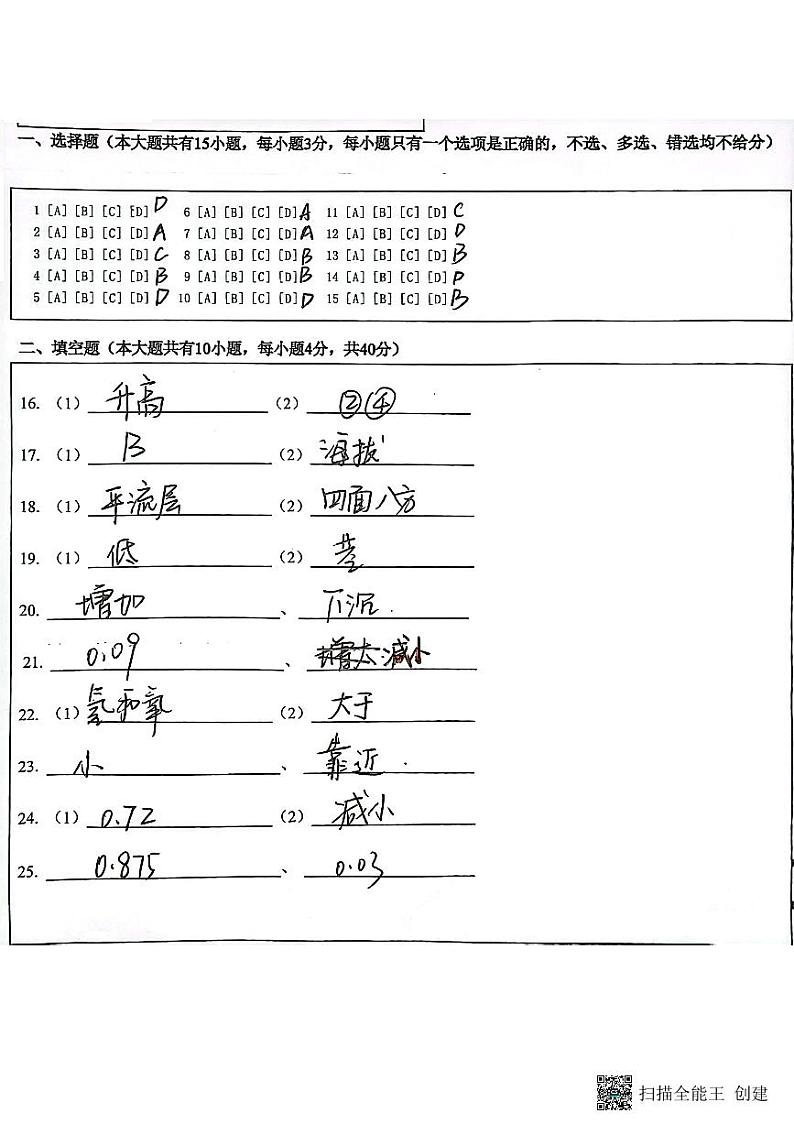 一、选择题（本大题共有15小题，每小题3分，每小题只有一个选项是正确的，不选、多选、错选均不给分）
1 [A] [B] [C] [D] D 6 [A] [B] [C] [D] A 11 [A] [B] [C] [D] C
2 [A] [B] [C] [D] A 7 [A] [B] [C] [D] A 12 [A] [B] [C] [D] D
3 [A] [B] [C] [D] C 8 [A] [B] [C] [D] B 13 [A] [B] [C] [D] B
4 [A] [B] [C] [D] B 9 [A] [B] [C] [D] B 14 [A] [B] [C] [D] D
5 [A] [B] [C] [D] D 10 [A] [B] [C] [D] D 15 [A] [B] [C] [D] B
二、填空题（本大题共有10小题，每小题4分，共40分）
16. （1） 升高 （2） ②④
17. （1） B （2） 海拔
18. （1） 平流层 （2） 四面八方
19. （1） 低 （2）
20. 增加 、 下沉.
21. 0.09 、 减小
22. （1） 氢和氧 （2） 大于
23. 小 、 靠近.
24. （1） 0.72 （2） 减小
25. 0.875 、 0.03
扫描全能王 创建